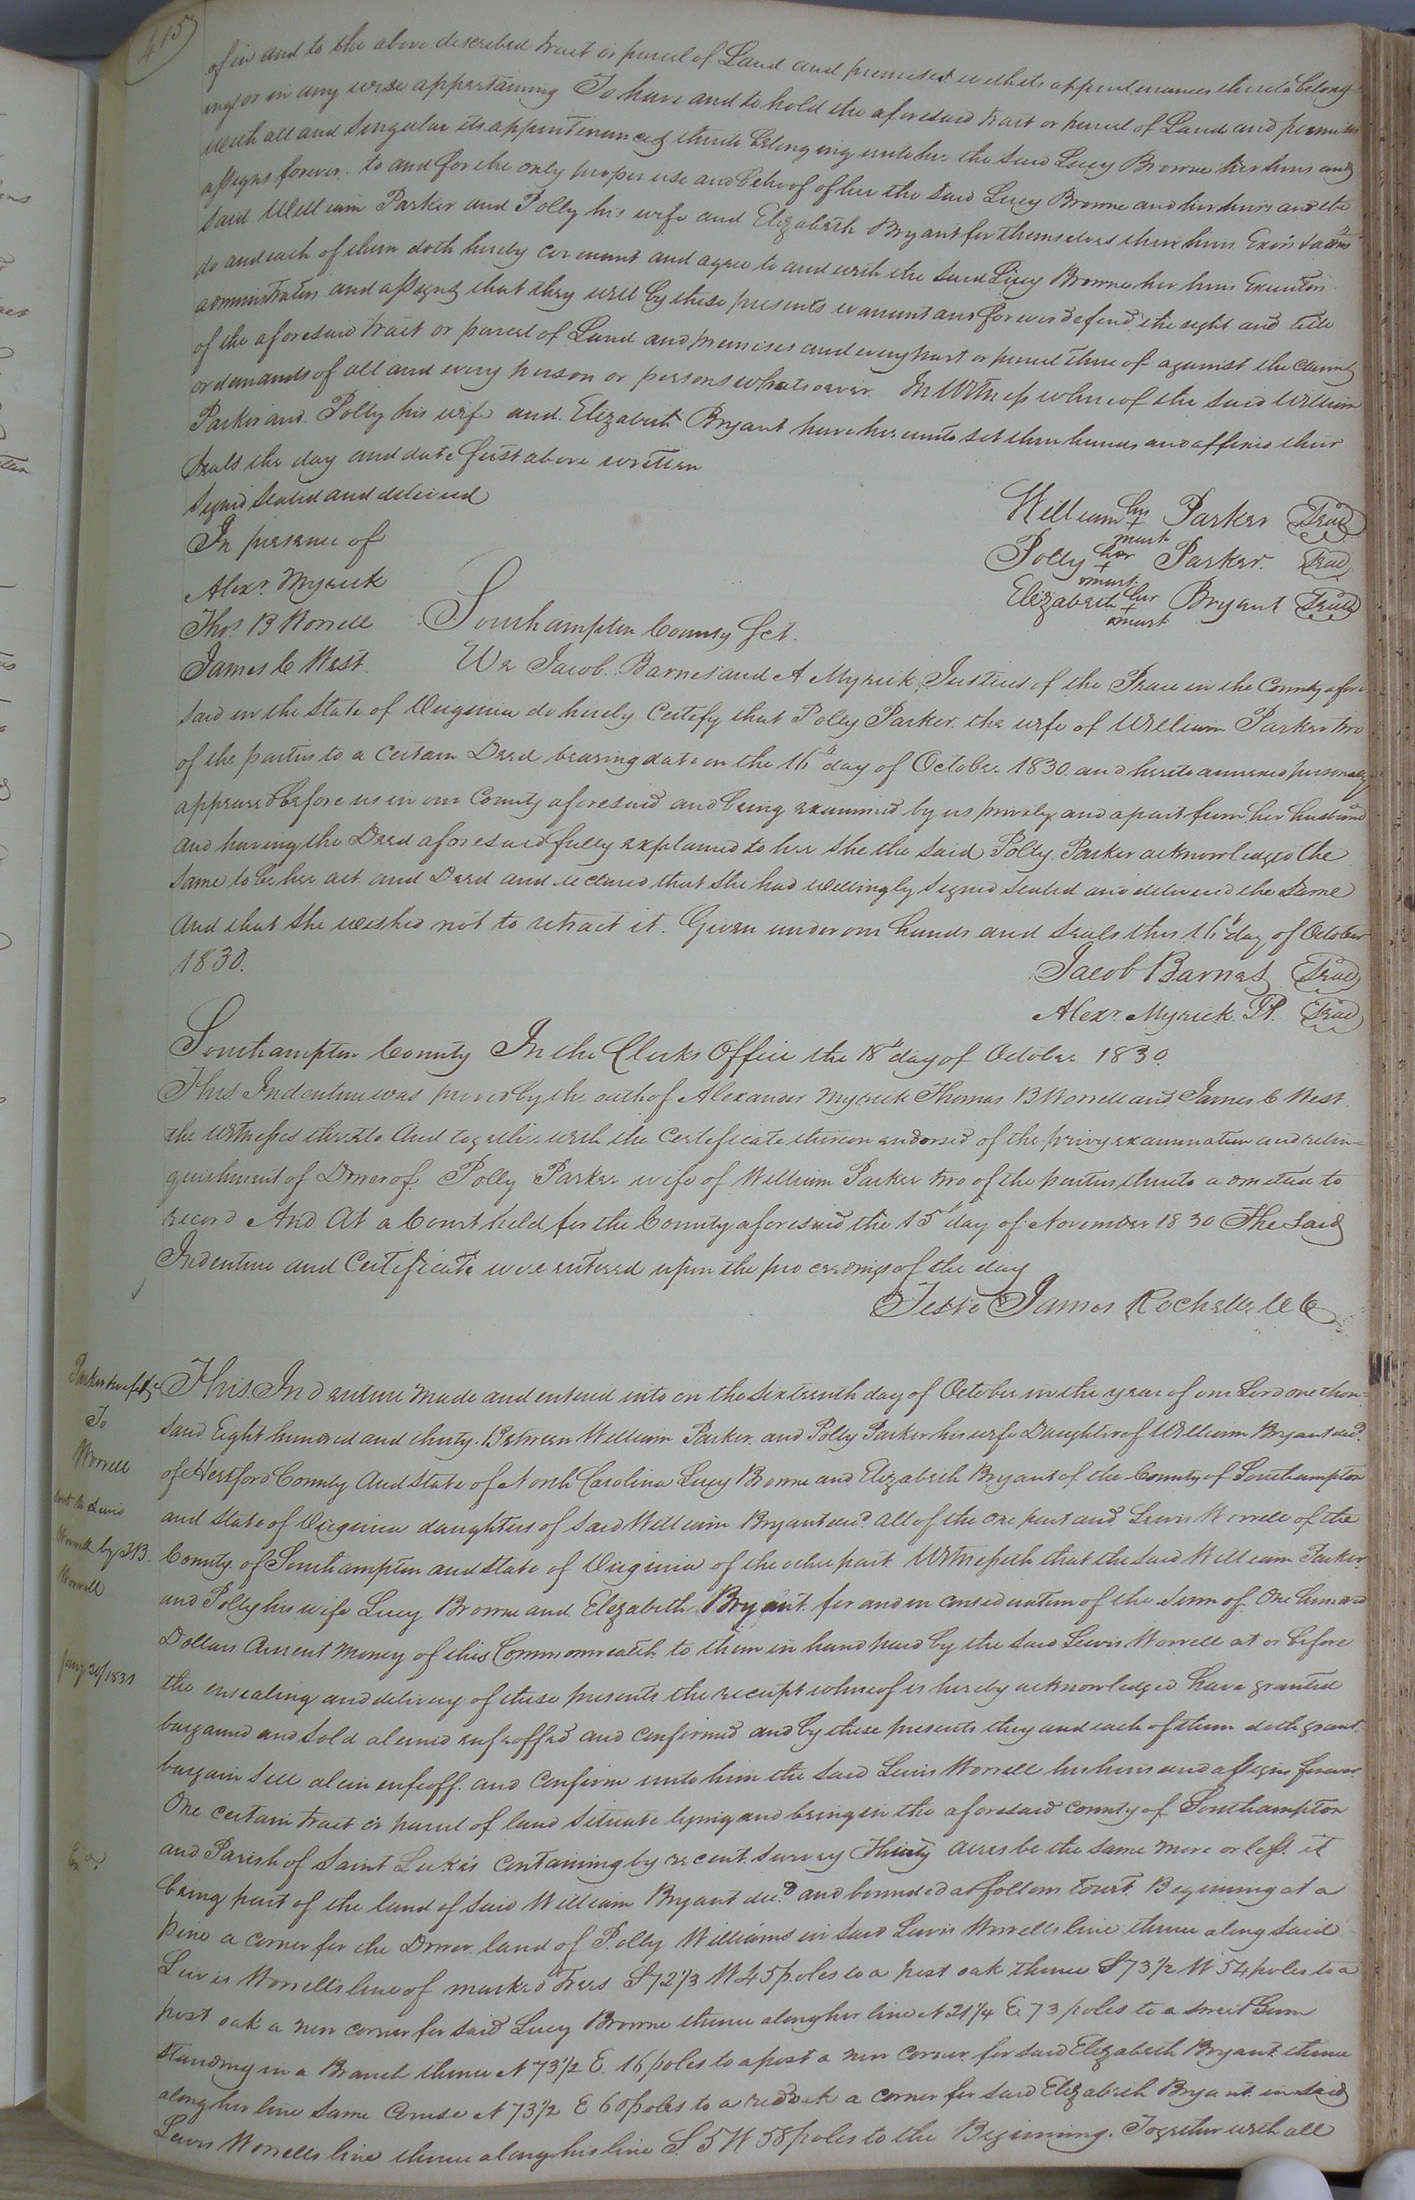 415
of in and to the above described tract or parcel of Land and premises with its appurtenances thereto belong
ing or in any wise appertaining To have and to hold the aforesaid tract or parcel of Land and premises
with all and Singular its appurtenances thereto belonging unto her the said Lucy Browne her heirs and
assigns forever. to and for the only proper use and behoof of her the said Lucy Browne and her heirs and the
said William Parker and Polly his wife and Elizabeth Bryant for themselves their heirs Exors &
do and each of them doth hereby covenant and agree to and with the said Lucy Browne her heirs Executors
administrators and assigns that they will by these presents warrant and forever defend the right and title
of the aforesaid tract or parcel of Land and premises and every part or parcel thereof against the claims
or demands of all and every person or persons whatsoever. In Witness whereof the said William
Parker and Polly his wife and Elizabeth Bryant have hereunto set their hands and affixed their
seals the day and date first above written
Signd sealed and deliverd
In presence of
Alexr. Myrick
Thos. B Worrell
James C West
William his + mark Parker Seal
Polly her + mark Parker. Seal
Elizabeth her + mark Bryant Seal
Southampton County Sct.
We Jacob Barnes and A Myrick, Justices of the Peace in the County afore
said in the State of Virginia do hereby Certify that Polly Parker the wife of William Parker two
of the parties to a certain Deed bearing date on the 16th day of October 1830 and hereto annexed personally
appeared before us in our County aforesaid and being examined by us privily and apart from her husband
and having the Deed aforesaid fully explained to her She the said Polly Parker acknowledged the
same to be her act and Deed and declared that she had willingly signed sealed and delivered the same
and that she wished not to retract it. Given under our hands and seals this 16th day of October
1830.
Jacob Barnes Seal
Alexr. Myrick. JP. Seal
Southampton County In the Clerks Office the 18th day of October 1830.
This Indenture was proved by the oath of Alexander Myrick Thomas B Worrell and James C West
the witnesses thereto And together with the certificate thereon endorsed of the privy examination and relin=
quishment of Dower of Polly Parker wife of William Parker two of the parties thereto admitted to
record And At a Court held for the County aforesaid the 15th day of November 1830 The said
Indenture and Certificate were entered upon the proceedings of the day
Teste James Rochelle CC
Parker & wife &c
To
Worrell
Lewis
Worrell by T.B.
Worrell
Jany 20/1831
Exd.
This Indenture made and entered into on the sixteenth day of October in the year of our Lord one thou=
sand Eight hundred and thirty. Between William Parker. and Polly Parker his wife Daughter of William Bryant decd.
of Hertford County And State of North Carolina Lucy Browne and Elizabeth Bryant of the County of Southampton
and State of Virginia daughters of said William Bryant decd. all of the one part and Lewis Worrell of the
County of Southampton and State of Virginia of the other part Witnesseth that the said William Parker
and Polly his wife Lucy Browne and Elizabeth Bryant for and in consideration of the sum of One hundred
Dollars current money of this Commonwealth to them in hand paid by the said Lewis Worrell at or before
the ensealing and delivery of these presents the receipt whereof is hereby acknowledged have granted
bargained and sold aliened enfeoffed and confirmed and by these presents they and each of them doth grant
bargain sell alien enfeoff. and Confirm unto him the said Lewis Worrell his heirs and assigns forever
One certain tract or parcel of land situate lying and being in the aforesaid county of Southampton
and Parish of Saint Luke's containing by recent survey Thirty acres be the same more or less it
being part of the land of said William Bryant decd. and bounded as follows towit. Begining at a
pine a corner for the Dower land of Polly Williams in said Lewis Worrells line thence along said
Lewis Worrells line of marked Trees S 72 1/3 W 45 poles to a post oak thence S 73 1/2 W 54 poles to a
post oak a new corner for said Lucy Browne thence along her line N 21 1/4 E. 73 poles to a sweet Gum
standing in a Branch thence N 73 1/2 E. 16 poles to a post a new corner for said Elizabeth Bryant thence
along her line same course N 73 1/2 E 60 poles to a red oak a corner for said Elizabeth Bryant in said
Lewis Worrells line thence along his line S. 5 W 58 poles to the Beginning. Together with all